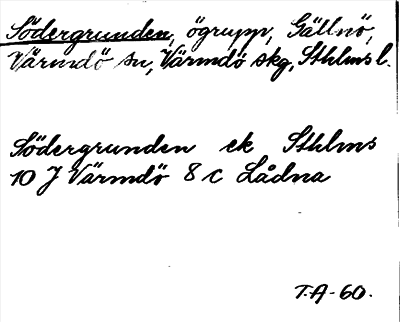 Södergrunden, ögrupp, Gällnö,
Värmdö sn, Värmdö skg, Sthlms l.
Södergrunden ek Sthlms
10 J Värmdö 8 c Lådna
T.A-60.